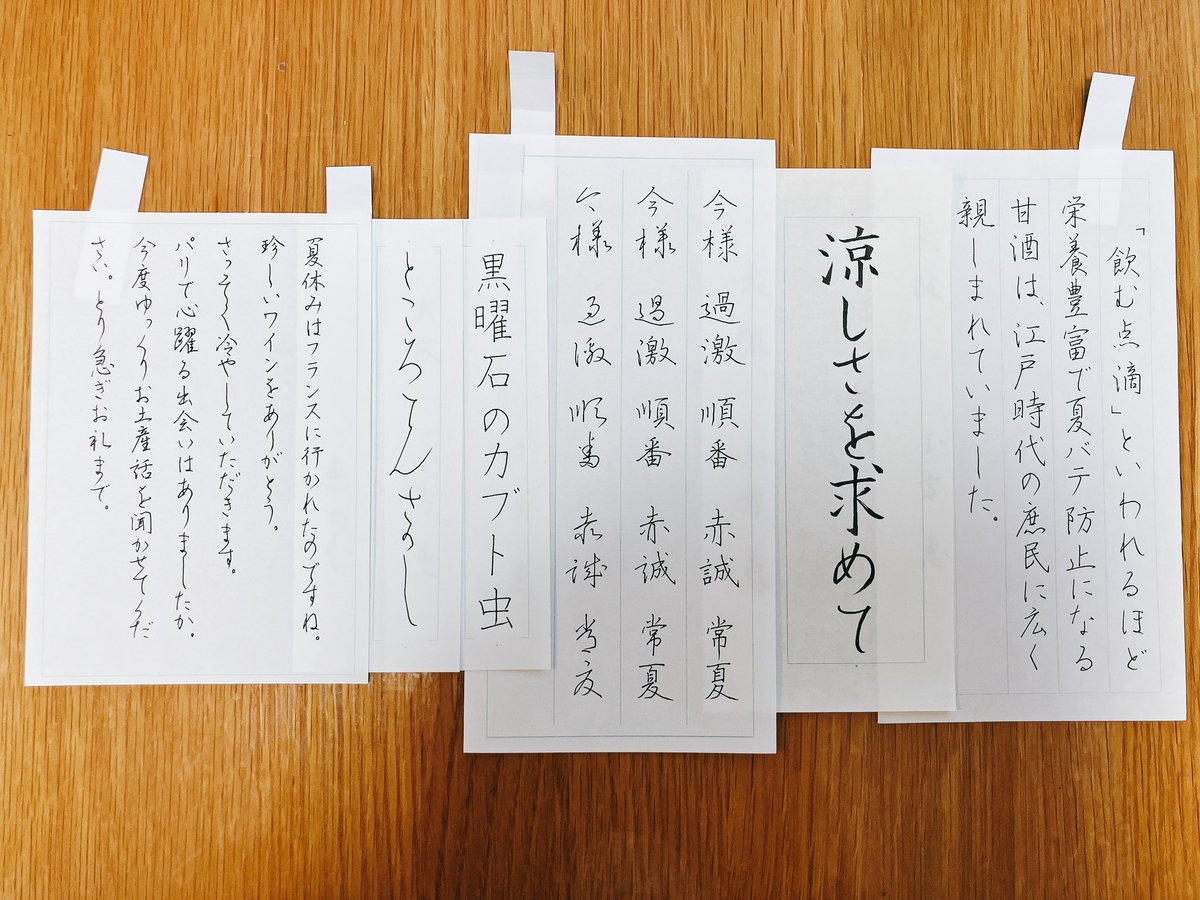 「飲む点滴」といわれるほど
栄養豊富で夏バテ防止になる
甘酒は、江戸時代の庶民に広く
親しまれていました。
涼しさを求めて
今様 過激 順番 赤誠 常夏
今様 過激 順番 赤誠 常夏
今様 過激 順番 赤誠 常夏
黒曜石のカブト虫
ところてんさよし
夏休みはフランスに行かれたのですね。
珍しいワインをありがとう。
さっそく冷やしていただきます。
パリで心躍る出会いはありましたか。
今度ゆっくりお土産話を聞かせてくだ
さい。とり急ぎお礼まで。